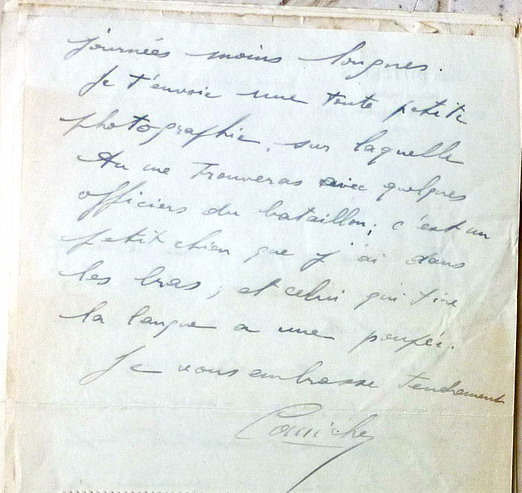 journées moins longues.
Je t'envoie une toute petite
photographie, sur laquelle
tu me trouveras avec quelques
officiers du bataillon; c'est un
petit chien que j'ai dans
les bras; et celui qui tire
la langue a une poupée.
Je vous embrasse tendrement